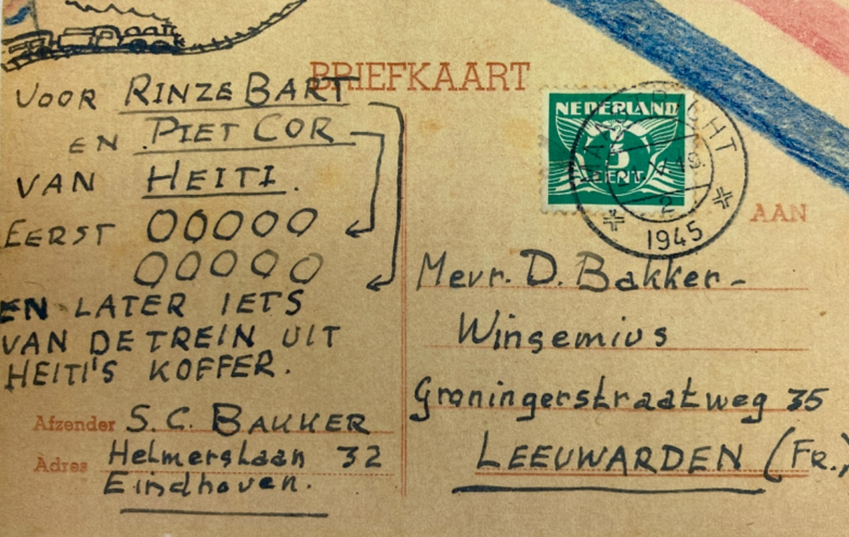 BRIEFKAART
VOOR RINZE BART
EN PIET COR
VAN HEITI.
EERST OOOOO
OOOOO
EN LATER IETS
VAN DE TREIN UIT
HEITI'S KOFFER.
Afzender S.C. BAKKER
Adres Helmerslaan 32
Eindhoven.
NEDERLAND
5
CENT
2
1945
AAN
Mevr. D. Bakker-
Wingemius
Groningerstraatweg 35
LEEUWARDEN (FR.)